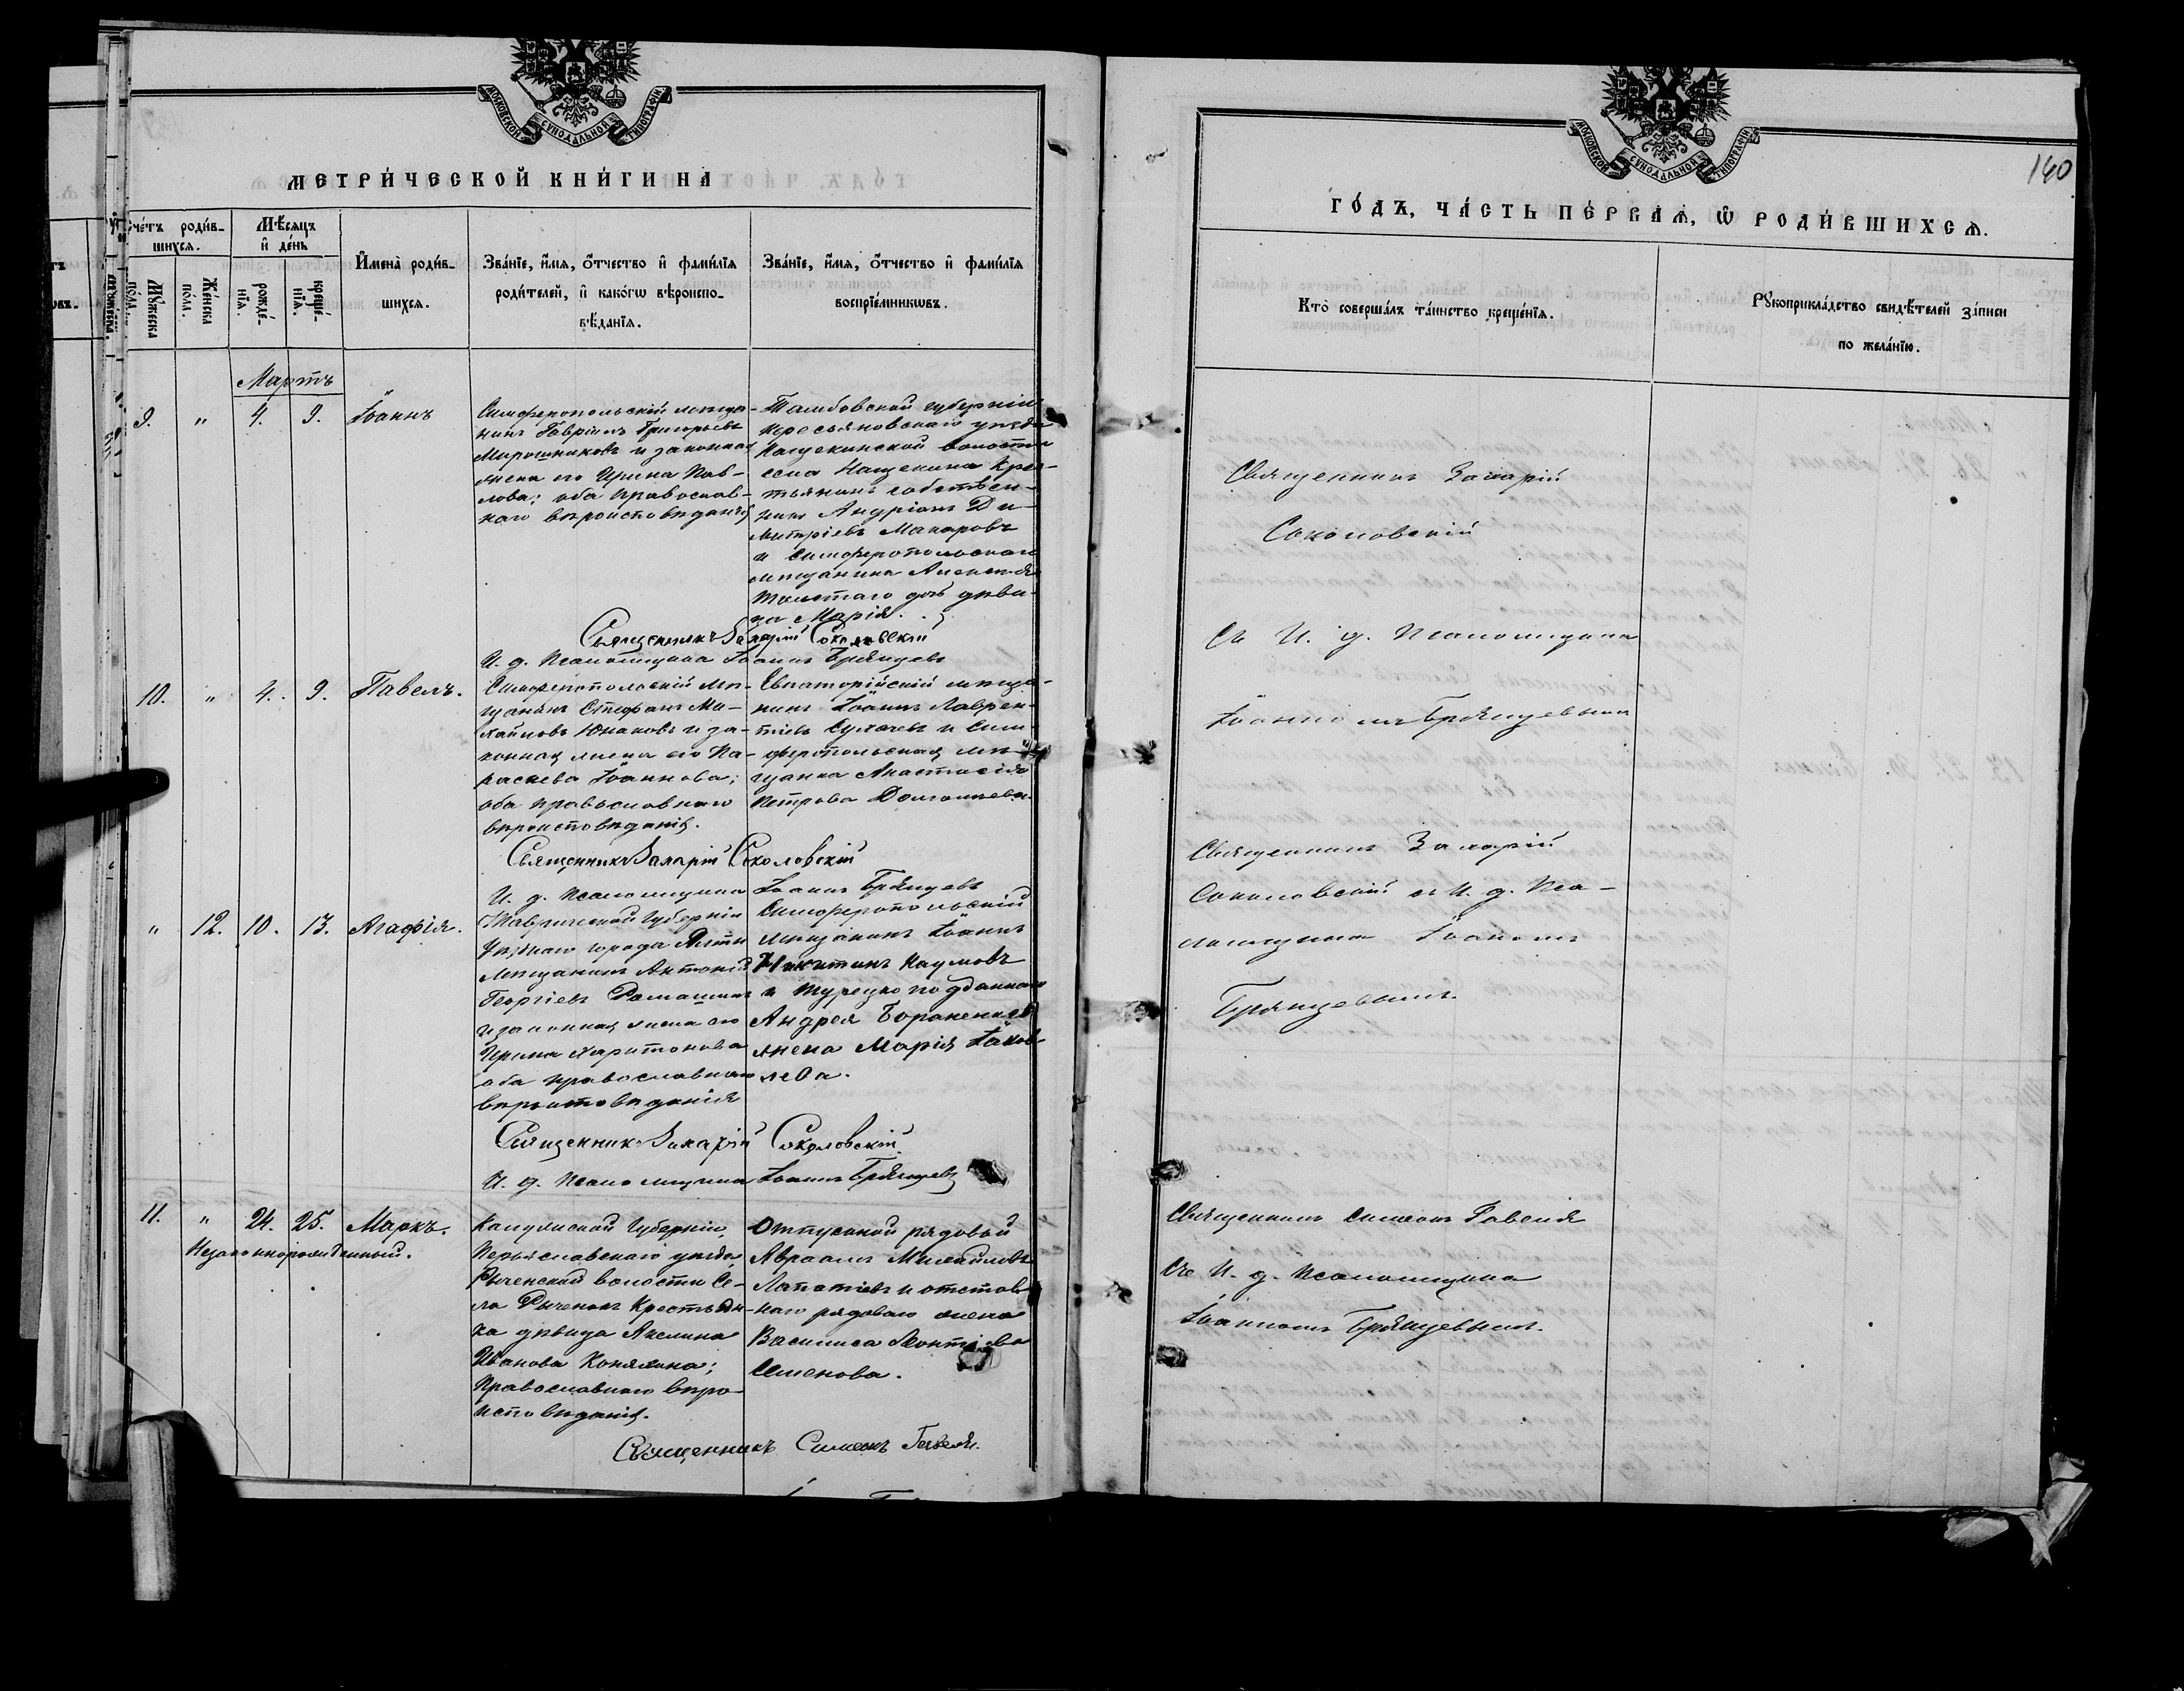 МОСКОВСКОЙ СѴНОДАЛЬНОЙ ТИПОГРАФІИ
МЕТРИ́ЧЕСКОЙ КНИ́ГИ НА
Сче́тъ роди́в-
шихся.
Мѣсяцъ
и҆ де́нь
Му́жеска по́ла.
Же́нска по́ла.
рожде́-
нїя.
креще́-
нїя.
И҆мена̀ роди́в-
шихся.
Зва́нїе, и҆́мя, ѻ҆́тчество и҆ фами́лїя
роди́телей, и҆ како́гѡ вѣроиспо-
вѣ́данїя.
Зва́нїе, и҆́мя, ѻ҆́тчество и҆ фами́лїя
воспрїе́мниковъ.
Мартъ
9. " 4. 9. Іоаннъ
Симферопольскій мѣща-
нинъ Гавріилъ Григорьевъ
Мирошниковъ и законная
жена его Ирина Пав-
лова; оба православ-
наго вѣроисповѣданія
Тамбовской губерніи
Кирсановскаго уѣзда
Нащекинской волости
села Нащекина Крес-
тьянинъ собствен-
никъ Андріанъ Ди-
митріевъ Макаровъ
и Симферопольскаго
мѣщанина Алексѣя
Толстаго дочь дѣви-
ца Марія.
Священникъ Захарій Соколовскій
И. д. Псаломщика Іоаннъ Брянцевъ
10. " 4. 9. Павелъ.
Симферопольскій мѣ-
щанинъ Стефанъ Ми-
хайловъ Юнаковъ и за-
конная жена его Па-
раскева Іоаннова;
оба православнаго
вѣроисповѣданія.
Евпаторійскій мѣща-
нинъ Іоаннъ Лаврен-
тіевъ и Сим-
феропольская мѣ-
щанка Анастасія
Петрова
Священникъ Захарій Соколовскій
И. д. Псаломщика Іоаннъ Брянцевъ
" 12. 10. 13. Агафія.
Таврической Губерніи
Уѣзднаго города Ялты
Мѣщанинъ Антоній
Георгіевъ Ромашин
и законная жена его
Ирина Харитонова
оба православнаго
вѣроисповѣданія
Симферопольскій
мѣщанинъ Іоаннъ
Никитинъ Наумовъ
и Турецко подданнаго
Андрея
жена Марія Іаков-
лева.
Священникъ Захарій Соколовскій
И. д. Псаломщика Іоаннъ Брянцевъ
11. " 24. 25. Маркъ.
Незаконнорожденный.
Калужской Губерніи,
уѣзда,
волости Се-
ла Крестьян-
ка дѣвица Акелина
Иванова Конялина;
Православнаго вѣро-
исповѣданія.
Отпускной рядовой
Авраамъ Михайловъ
Лапатіевъ и отстав-
наго рядоваго жена
Василиса Леонтіева
Семенова.
Священникъ Симеонъ Гавеля.
МОСКОВСКОЙ СѴНОДАЛЬНОЙ ТИПОГРАФІИ
160
ГО́ДЪ, ЧА́СТЬ ПЕ́РВАЯ, Ѿ РОДИ́ВШИХСЯ.
Кто̀ соверша́лъ та́инство креще́нїя.
Рꙋкоприкла́дство свидѣ́телей за́писи
по жела́нїю.
Священникъ Захарій
Соколовскій
Съ И. д. Псаломщика
Іоанномъ Брянцевымъ
Священникъ Захарій
Соколовскій съ И. д. Пса-
ломщика Іоанномъ
Брянцевымъ.
Священникъ Симеонъ Гавеля
Съ И. д. Псаломщика
Іоанномъ Брянцевымъ.